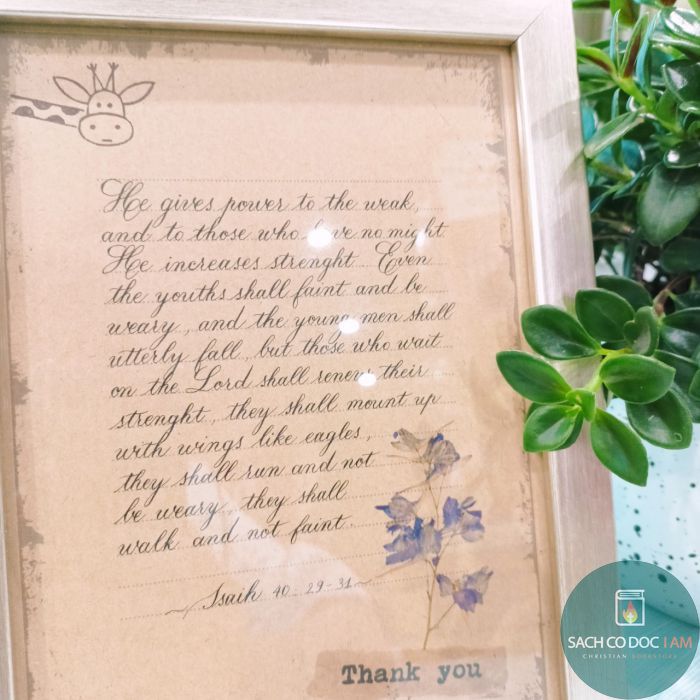 He gives power to the weak,
and to those who have no might
He increases strenght. Even
the youths shall faint and be
weary, and the young men shall
utterly fall, but those who wait
on the Lord shall renew their
strenght, they shall mount up
with wings like eagles,
they shall run and not
be weary, they shall
walk and not faint.
Isaih 40 : 29 - 31
Thank you
SACH CO DOC I AM
CHRISTIAN BOOKSTORE